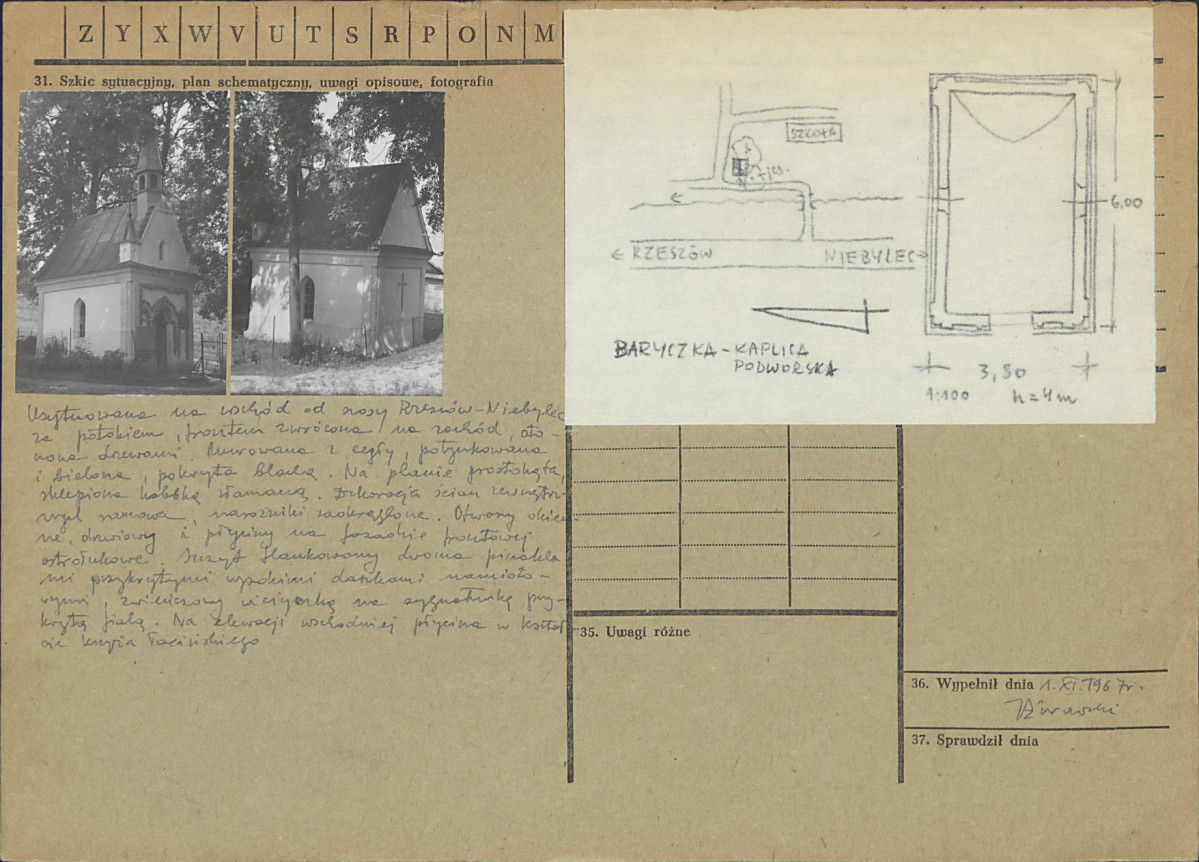 Z Y X W V U T S R P O N M
31. Szkic sytuacyjny, plan schematyczny, uwagi opisowe, fotografia
SZKOŁA
jes.
6,00
← RZESZÓW
NIEBYLEC →
BARYCZKA - KAPLICA
PODWORSKA
3,50
1:100 h = 4m
Usytuowana na wschód od szosy Rzeszów-Niebylec
za potokiem, frontem zwrócona na zachód, oto-
czona drzewami. Murowana z cegły, potynkowana
i bielona, pokryta blachą. Na planie prostokąta,
sklepiona kolebką złamaną. Dekoracja ścian zewnętrz-
nych ramowa, narożniki zaokrąglone. Otwory okien-
ne, drzwiowy i płyciny na fasadzie frontowej
ostrołukowe. Szczyt flankowany dwoma pinakla-
mi przykrytymi wysokimi daszkami namioto-
wymi, zwieńczony wieżyczką na sygnaturkę przy-
krytą fialą. Na elewacji wschodniej płycina w kształ-
cie krzyża łacińskiego
35. Uwagi różne
36. Wypełnił dnia 1.XI.1967r.
37. Sprawdził dnia